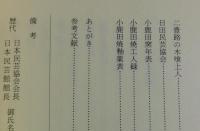 二豊路の木喰上人
日田民芸協会
小鹿田窯年表
小鹿田焼工人録
小鹿田焼釉薬表
あとがき
参考文献
備考
歴代 日本民芸協会会長
日本民芸館館長 御氏名